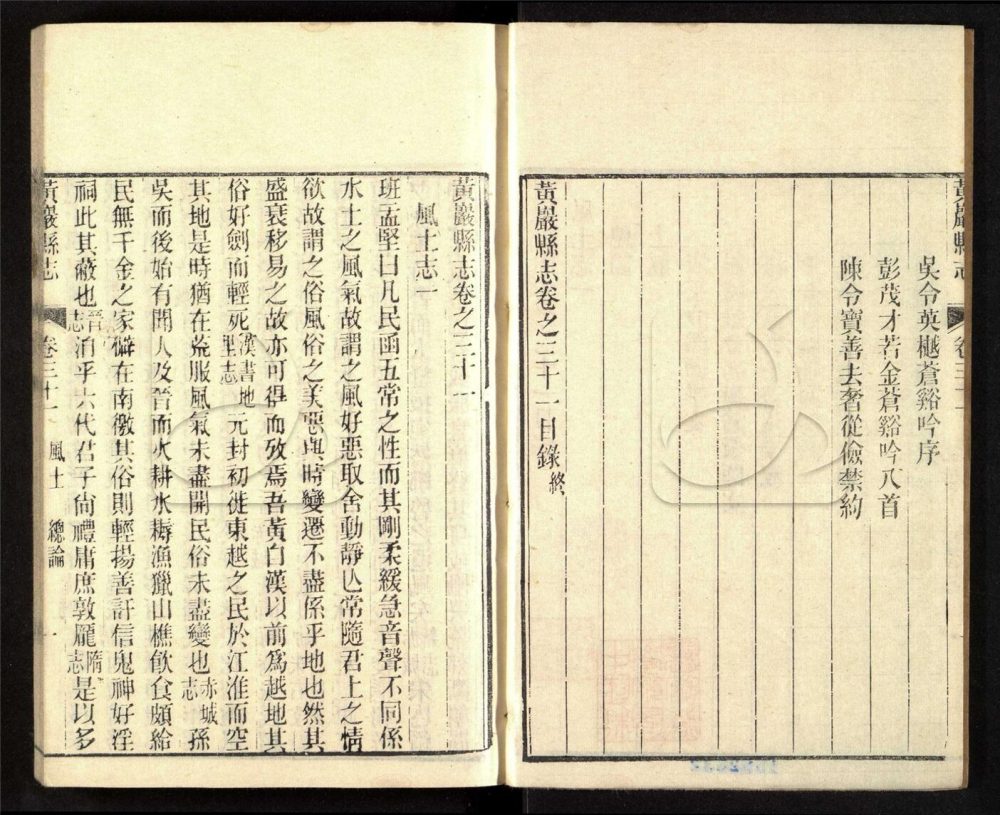 黃巖縣志
卷三十一
吳令英樾蒼谿吟序
彭茂才若金蒼谿吟八首
陳令寶善去奢從儉禁約
黃巖縣志卷之三十一目錄終
黃巖縣志卷之三十一
風土志一
班孟堅曰凡民函五常之性而其剛柔緩急音聲不同係
水土之風氣故謂之風好惡取舍動靜亾常隨君上之情
欲故謂之俗風俗之美惡與時變遷不盡係乎地也然其
盛衰移易之故亦可得而攷焉吾黃自漢以前爲越地其
俗好劍而輕死漢書地里志元封初徙東越之民於江淮而空
其地是時猶在荒服風氣未盡開民俗未盡變也赤城志孫
吳而後始有聞人及晉而火耕水耨漁獵山樵飲食頗給
民無千金之家僻在南徼其俗則輕揚善訐信鬼神好淫
祠此其蔽也晉志洎乎六代君子尚禮庸庶敦龐隋志是以多
黃巖縣志
卷三十一
風土
總論
一
1582632